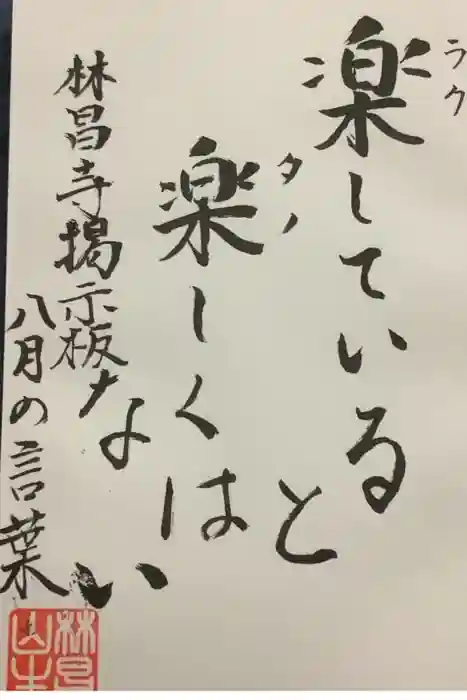 楽している
ラク
と
楽しくは
タノ
ない
林昌寺掲示板
八月の言葉